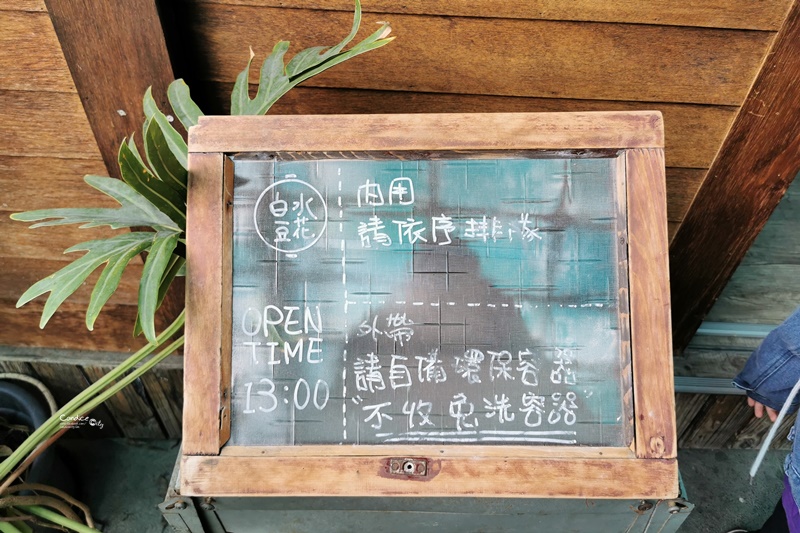 白水
豆花
OPEN
TIME
13:00
內用
請依序排隊
外帶
請自備環保容器
"不收免洗容器"